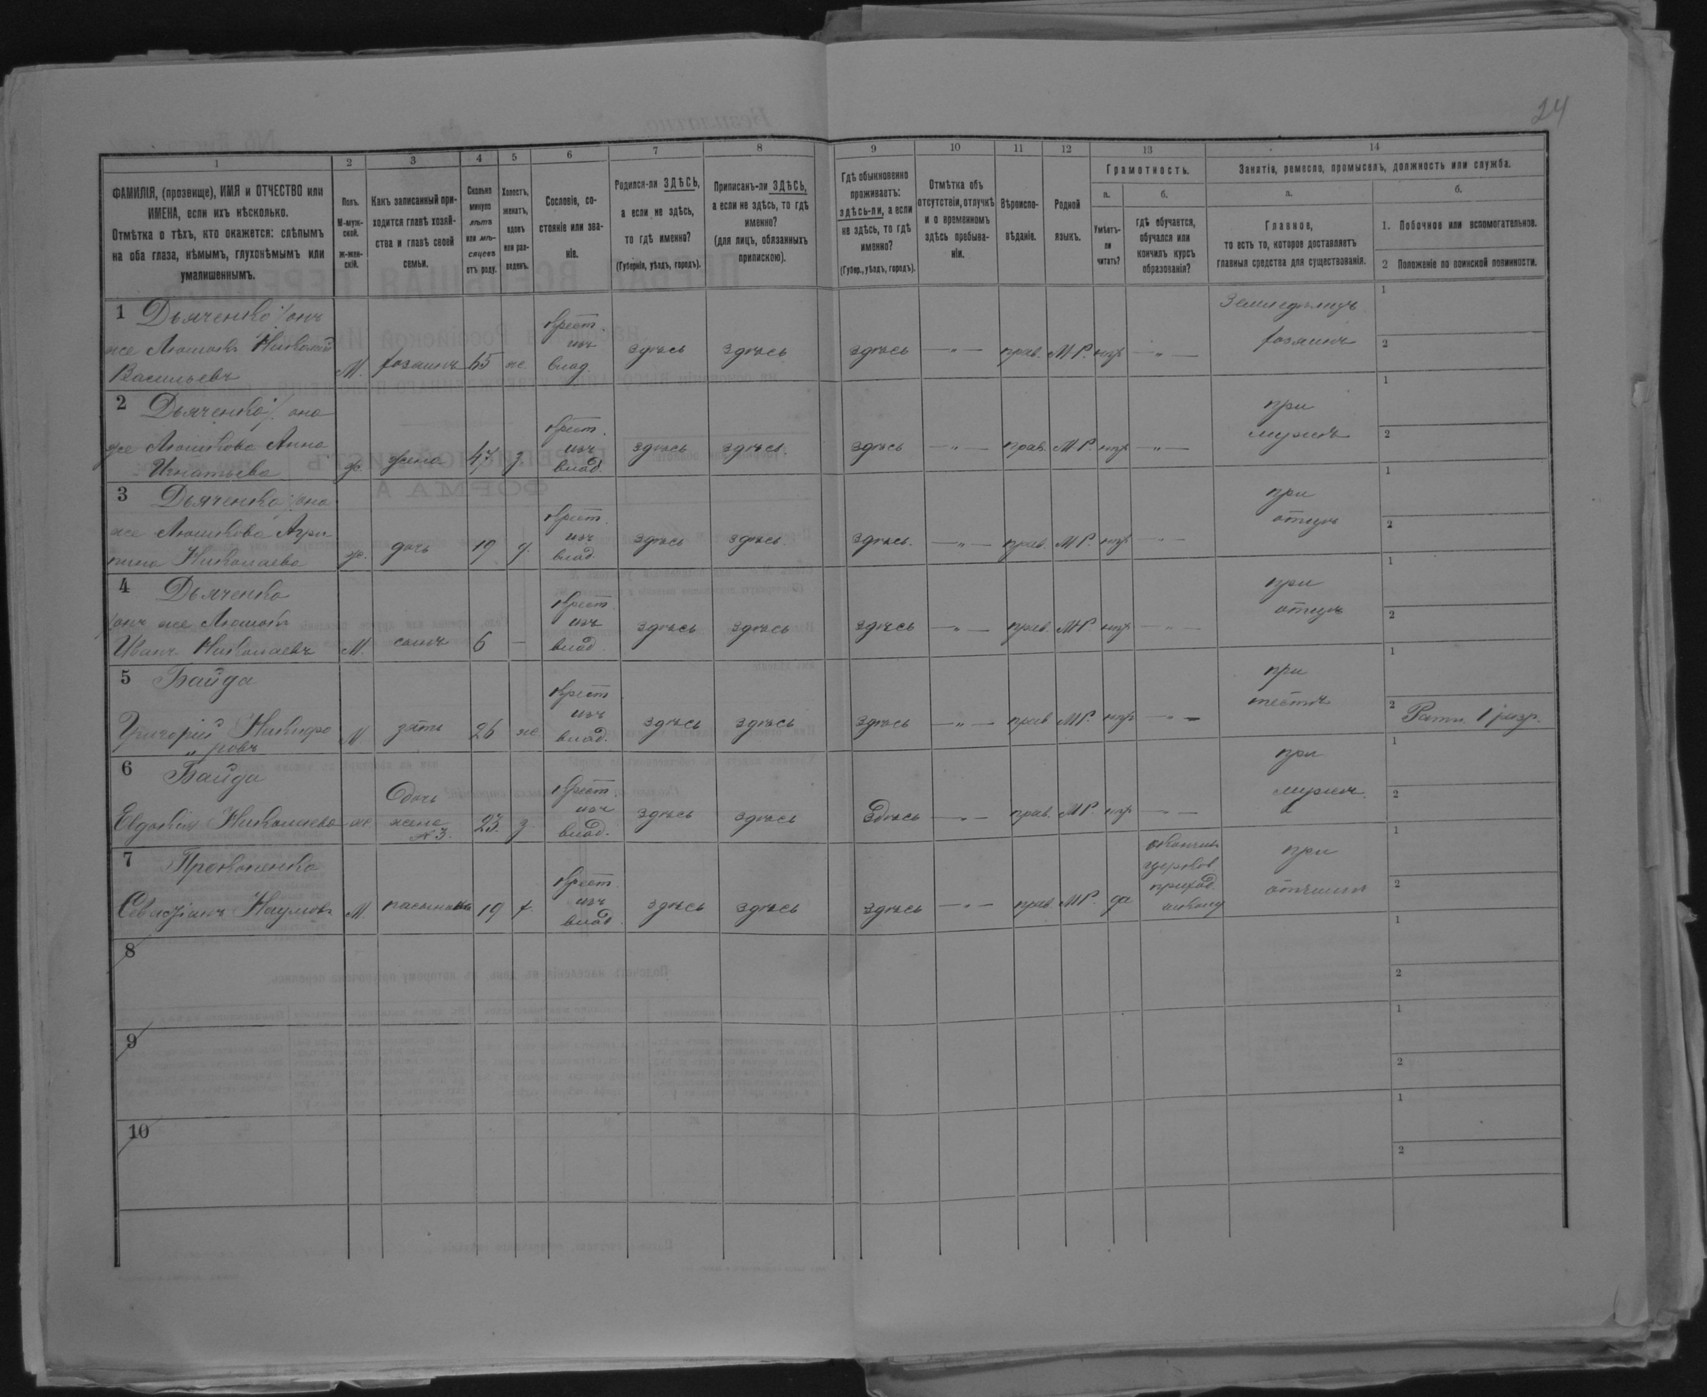 24
1
2
3
4
5
6
7
8
9
10
11
12
13
14
ФАМИЛІЯ, (прозвище), ИМЯ и ОТЧЕСТВО или
ИМЕНА, если ихъ нѣсколько.
Отмѣтка о тѣхъ, кто окажется: слѣпымъ
на оба глаза, нѣмымъ, глухонѣмымъ или
умалишеннымъ.
Полъ.
М-муж-
ской.
ж-жен-
скій.
Какъ записанный при-
ходится главѣ хозяй-
ства и главѣ своей
семьи.
Сколько
минуло
лѣтъ
или мѣ-
сяцевъ
отъ роду.
Холостъ,
женатъ,
вдовъ
или раз-
веденъ.
Сословіе, со-
стояніе или зва-
ніе.
Родился-ли ЗДѢСЬ,
а если не здѣсь,
то гдѣ именно?
(Губернія, уѣздъ, городъ).
Приписанъ-ли ЗДѢСЬ,
а если не здѣсь, то гдѣ
именно?
(для лицъ, обязанныхъ
припискою).
Гдѣ обыкновенно
проживаетъ:
здѣсь-ли, а если
не здѣсь, то гдѣ
именно?
(Губер., уѣздъ, городъ).
Отмѣтка объ
отсутствіи, отлучкѣ
и о временномъ
здѣсь пребыва-
ніи.
Вѣроиспо-
вѣданіе.
Родной
языкъ.
Грамотность.
а.
Умѣетъ-
ли
читать?
б.
гдѣ обучается,
обучался или
кончилъ курсъ
образованія?
Занятіе, ремесло, промыселъ, должность или служба.
а.
Главное,
то есть то, которое доставляетъ
главныя средства для существованія.
б.
1. Побочное или вспомогательное.
2 Положеніе по воинской повинности.
1 Дьяченко /онъ
же Николай
Васильевъ М. хозяинъ 45 же крест. изъ влад. здѣсь здѣсь здѣсь — " — прав. МР. нѣт — " — Земледѣлецъ хозяинъ
1
2
2 Дьяченко /она
же Анна
Игнатьева ж. жена 47 з крест. изъ влад. здѣсь здѣсь здѣсь — " — прав. МР. нѣт — " — при мужѣ
1
2
3 Дьяченко /она
же Агри
пина Николаева ж. дочь 19 крест. изъ влад здѣсь здѣсь здѣсь. — " — прав. МР. нѣт — — при отцѣ
1
2
4 Дьяченко
/онъ же
Иванъ Николаевъ М. сынъ 6 — крест. изъ влад. здѣсь здѣсь здѣсь — " — прав. МР. нѣт — — при отцѣ
1
2
5 Байда
Григорій Никифо
ровъ М зять 26 же крест. изъ влад. здѣсь здѣсь здѣсь — " — прав МР. нѣт — — при тестѣ
1
2 Ратн. 1 разр.
6 Байда
Евдокія Николаева ж дочь жена 23. з крест. изъ влад. здѣсь здѣсь здѣсь — " — прав. МР. нѣт — — при мужѣ.
1
2
7 Прокопенко
Севастіанъ Наумовъ М пасынокъ 19 х. крест. изъ влад здѣсь здѣсь здѣсь — " — прав. МР. да церков приход. школу при отчимѣ
1
2
8
1
2
9
1
2
10
1
2